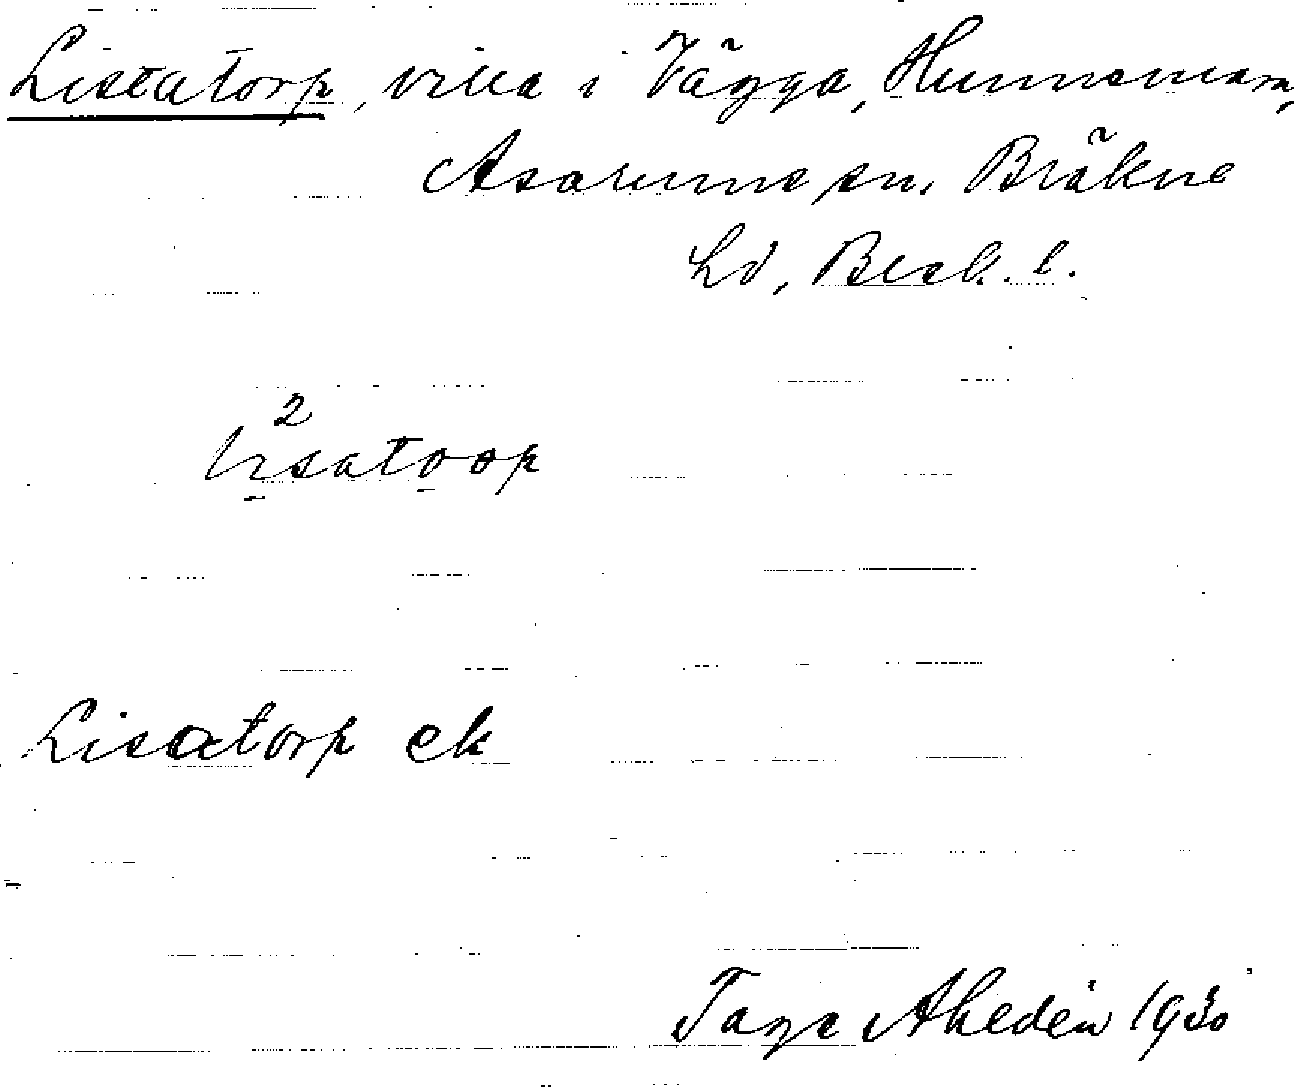 Listatorp, villa i Vägga, Hunnemara,
Asarums sn, Bräkne
hd, Blek. l.
2
Lisatoop
Lisatorp ek
Tage Ahedén 1930